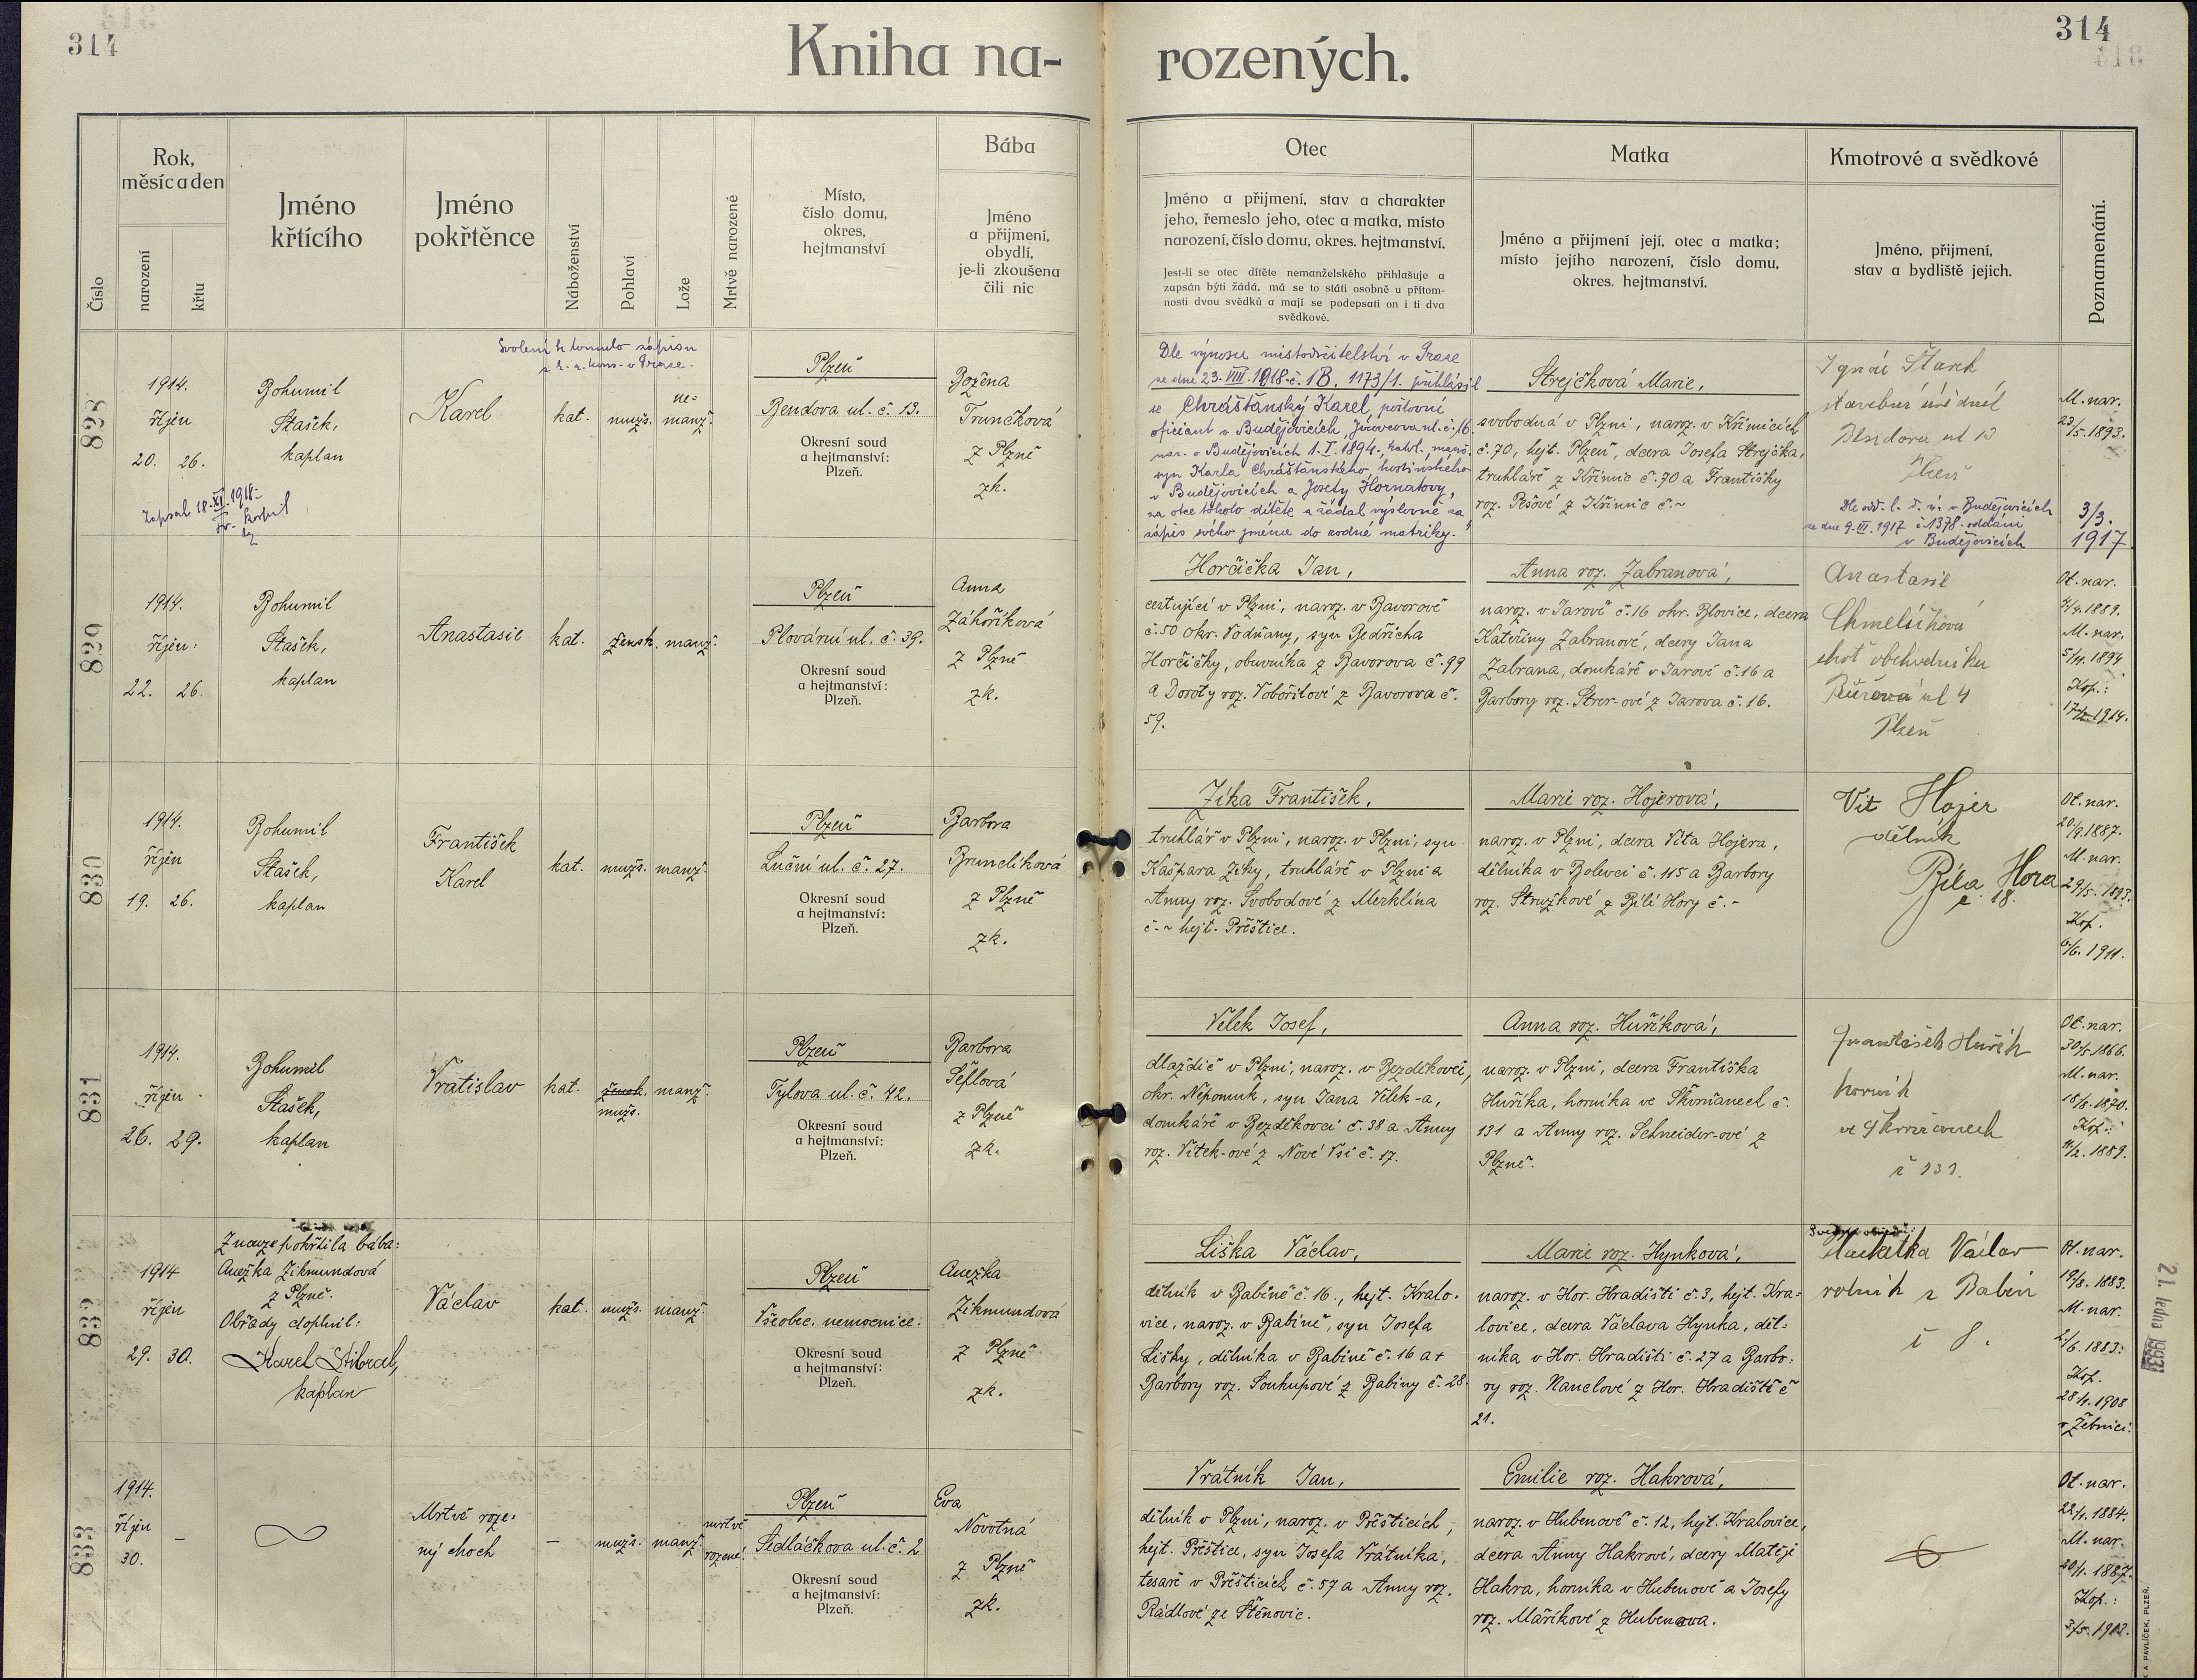 314
314
Kniha na-
rozených.
Číslo
Rok,
měsíc a den
narození
křtu
Jméno
křtícího
Jméno
pokřtěnce
Náboženství
Pohlaví
Lože
Mrtvě narozené
Místo,
číslo domu,
okres,
hejtmanství
Bába
Jméno
a příjmení,
obydlí,
je-li zkoušena
čili nic
Otec
Jméno a přijmení, stav a charakter
jeho, řemeslo jeho, otec a matka, místo
narození, číslo domu, okres. hejtmanství.
Jest-li se otec dítěte nemanželského přihlašuje a
zapsán býti žádá, má se to státi osobně u přítom-
nosti dvou svědků a mají se podepsati on i ti dva
svědkové.
Matka
Jméno a přijmení její, otec a matka;
místo jejího narození, číslo domu,
okres. hejtmanství.
Kmotrové a svědkové
Jméno, přijmení,
stav a bydliště jejich.
Poznamenání.
828
1914.
říjen
20. 26.
Zapsal 18. XI. 1918:
Bohumil
Stašek,
kaplan
Svolení k tomuto zápisu
Karel
kat.
mužs.
ne=
manž.
Plzeň
Bendova ul. č. 13.
Okresní soud
a hejtmanství:
Plzeň.
Božena
Trunečková
z Plzně
zk.
Dle výnosu místodržitelství v Praze
ze dne 23. VIII. 1918 č. 1B. 1173/1. přihlásil
se Chrášťanský Karel, poštovní
oficiant v Budějovicích, Jírovcova ul. č. 16.
nar. v Budějovicích 1. I. 1894, katol., manž.
syn Karla Chrášťanského, hostinského
v Budějovicích a Josefy Hornatovy,
za otce tohoto dítěte a žádal výslovně za
zápis svého jména do rodné matriky.
Strejčková Marie,
svobodná v Plzni, naroz. v Křimicích
č. 70, hejt. Plzeň, dcera Josefa Strejčka,
truhláře z Křimic č. 70 a Františky
roz. Pešové z Křimic č. ~
Ignác Stark
stavební úředník
Bendova ul 13
Plzeň
Dle odd. l. v Budějovicích
ze dne 9. III. 1917 č. 1378. oddáni
v Budějovicích
M. nar.
23/5. 1893.
3/3.
1917
829
1914.
říjen
22. 26.
Bohumil
Stašek,
kaplan
Anastasie
kat.
žensk.
manž.
Plzeň
Plovární ul. č. 39.
Okresní soud
a hejtmanství:
Plzeň.
Anna
Záhoříková
z Plzně
zk.
Horčička Jan,
cestující v Plzni, naroz. v Bavorově
č. 50 okr. Vodňany, syn Bedřicha
Horčičky, obuvníka z Bavorova č. 99
a Doroty roz. Vobořilové z Bavorova č.
59.
Anna roz. Zabranová,
naroz. v Jarově č. 16 okr. Blovice, dcera
Kateřiny Zabranové, dcery Jana
Zabrana, domkáře v Jarově č. 16 a
Barbory roz. Strer-ové z Jarova č. 16.
Anastasie
Chmelíková
choť obchodníka
ul 4
Plzeň
Ot. nar.
1889.
M. nar.
5/11. 1894
Kop.:
1914.
830
1914.
říjen
19. 26.
Bohumil
Stašek,
kaplan
František
Karel
kat.
mužs.
manž.
Plzeň
Luční ul. č. 27.
Okresní soud
a hejtmanství:
Plzeň.
Barbora
Brunclíková
z Plzně
zk.
Zíka František,
truhlář v Plzni, naroz. v Plzni, syn
Kašpara Zíky, truhláře v Plzni a
Anny roz. Svobodové z Merklína
č. ~ hejt. Přeštice.
Marie roz. Hojerová,
naroz. v Plzni, dcera Víta Hojera,
dělníka v Bolevci č. 115 a Barbory
roz. Stružkové z Bílé Hory č. -
Vít Hojer
dělník
Bíla Hora
č. 18.
Ot. nar.
20/9. 1887.
M. nar.
29/5. 1893.
Kop.
6/6. 1911.
831
1914.
říjen
26. 29.
Bohumil
Stašek,
kaplan
Vratislav
kat.
žensk.
mužs.
manž.
Plzeň
Tylova ul. č. 42.
Okresní soud
a hejtmanství:
Plzeň.
Barbora
Šeflová
z Plzně
zk.
Vělek Josef,
dlaždič v Plzni, naroz. v Bezděkovci,
okr. Nepomuk, syn Jana Vělek-a,
domkáře v Bezděkovci č. 38 a Anny
roz. Vítek-ové z Nové Vsi č. 17.
Anna roz. Huříková,
naroz. v Plzni, dcera Františka
Huříka, horníka ve Skvrňanech č.
131 a Anny roz. Schneider-ové z
Plzně.
František Huřík
horník
ve Skvrňanech
č 131.
Ot. nar.
30/5. 1866.
M. nar.
18/8. 1870.
Kop.:
11/2. 1889.
832
1914
říjen
29. 30.
Z nouze pokřtila bába:
Anežka Zikmundová
z Plzně.
Obřady doplnil:
Karel Stibral,
kaplan
Václav
kat.
mužs.
manž.
Plzeň
Všeobec. nemocnice.
Okresní soud
a hejtmanství:
Plzeň.
Anežka
Zikmundová
z Plzně
zk.
Liška Václav,
dělník v Babině č. 16., hejt. Kralo-
vice, naroz. v Babině, syn Josefa
Lišky, dělníka v Babině č. 16 a +
Barbory roz. Soukupové z Babiny č. 28.
Marie roz. Hynková,
naroz. v Hor. Hradišti č. 3, hejt. Kra=
lovice, dcera Václava Hynka, děl=
níka v Hor. Hradišti č. 27 a Barbo:
ry roz. Nanclové z Hor. Hradiště č
21.
Václav
rolník z Babin
č 8.
Ot. nar.
19/8. 1883.
M. nar.
1883.
Kop.
28/1. 1908
v Žebnici.
21. ledna 1993
833
1914.
říjen –
30.
Mrtvě roze=
ný hoch
—
mužs.
manž.
mrtvě
rozené.
Plzeň
Sedláčkova ul. č. 2
Okresní soud
a hejtmanství:
Plzeň.
Eva
Novotná
z Plzně
zk.
Vrátník Jan,
dělník v Plzni, naroz. v Přešticích,
hejt. Přeštice, syn Josefa Vrátníka,
tesaře v Přešticích č. 57 a Anny roz.
Rádlové ze Štěnovic.
Emilie roz. Hakrová,
naroz. v Hubenově č. 12, hejt. Kralovice,
dcera Anny Hakrové, dcery Matěje
Hakra, horníka v Hubenově a Josefy
roz. Maříkové z Hubenova.
Ot. nar.
22/1. 1884.
M. nar.
1887.
Kop.:
A PAVLÍČEK, PLZEŇ.